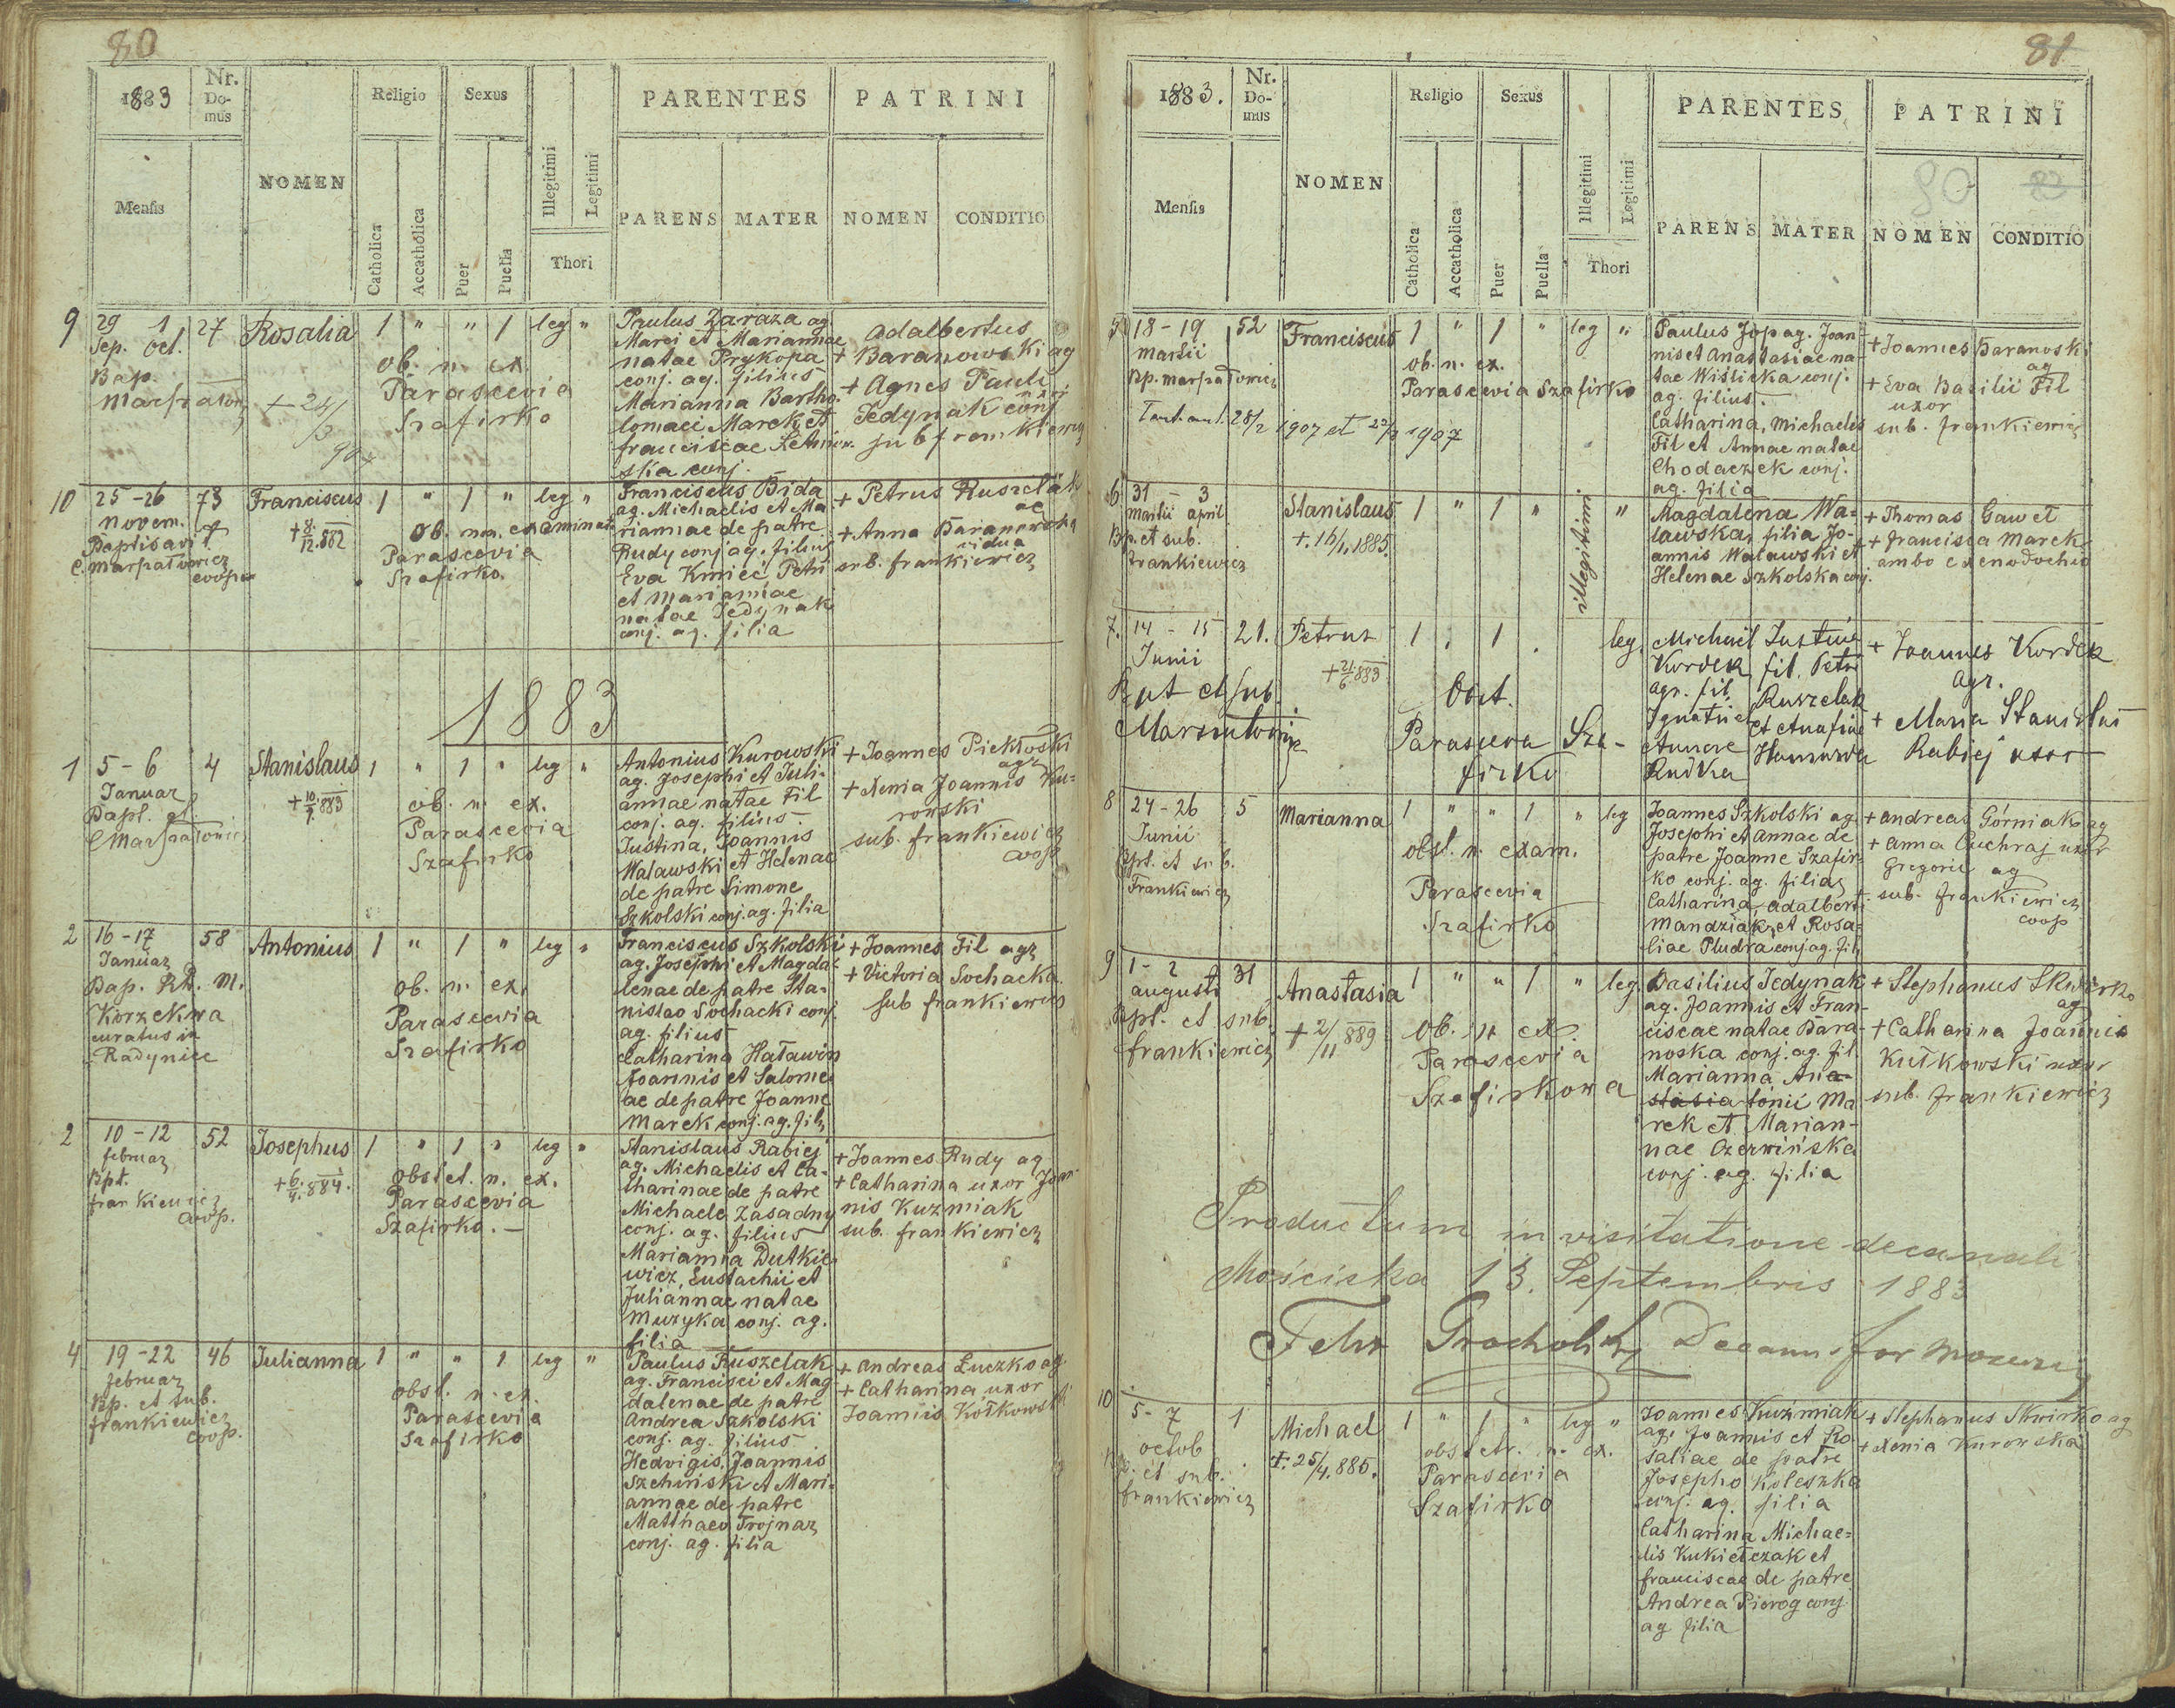 80
1883
Nr. Domus
NOMEN
Religio
Sexus
PARENTES
PATRINI
Mensis
Catholica
Accatholica
Puer
Puella
Illegitimi
Legitimi
Thori
PARENS
MATER
NOMEN
CONDITIO
9
29 1
Sep. Oct.
Bap.
27
Rosalia
1 " " 1 leg "
ob. n. ex
Parascevia
Szafirko
Paulus Zaraza ag
Marci et Mariannae
natae Prykopa
conj. ag. filius
Marianna Bartho-
lomaei Marek et
franciscae Letniow-
ska conj.
Adalbertus
+ Baranowski ag
+ Agnes Pauli
Jedynak conj
sub frankiewicz
10
25-26
Novem.
Baptisavit
C. Marpatowicz
coop
73
Franciscus
+ 8/12.882
1 " 1 " leg "
ob. non examinat
Parascevia
Szafirko.
Franciscus Bida
ag. Michaelis et Ma
riannae de patre
Rudy conj ag. filius
Eva Kmieć, Petri
et Mariannae
natae Jedynak
conj. ag. filia
+ Petrus Ruszelak
ag
+ Anna Baranowska
vidua
sub. frankiewicz
1883
1
5-6
Januar
Bapt. et
C Marpatowicz
4
Stanislaus
1 " 1 " leg "
ob. n. ex.
Parascevia
Szafirko
Antonius Kurowski
ag. Josephi et Juli-
annae natae Fil
conj. ag. filius
Justina, Joannis
Walawski et Helenae
de patre Simone
Szkolski conj. ag. filia
+ Joannes Piekłoski
agr
+ Xenia Joannis Ku-
rowski
sub. frankiewicz
coop
2
16-17
Januar
Bap. RD. M.
Korzekwa
curatus in
Radynice
58
Antonius
1 " 1 " leg "
ob. n. ex.
Parascevia
Szafirko
Franciscus Szkolski
ag. Josephi et Magda-
lenae de patre Sta-
nislao Sochacki conj.
ag. filius
Catharina Haławin
Joannis et Salome-
ae de patre Joanne
Marek conj. ag. fil
+ Joannes Fil agr
+ Victoria Sochacka
sub frankiewicz
2
10-12
februar
Bpt.
frankiewicz
coop.
52
Josephus
+ 6/4.884.
1 " 1 " leg "
obstet. n. ex.
Parascevia
Szafirko.-
Stanislaus Rabiej
ag. Michaelis et Ca-
tharinae de patre
Michaele Zasadny
conj. ag. filius
Marianna Dutkie-
wicz, Eustachii et
Juliannae natae
Muzyka conj. ag.
filia
+ Joannes Rudy ag
+ Catharina uxor Joan
nis Kuzmiak
sub. frankiewicz
4
19-22
februar
Bp. et sub.
frankiewicz
coop.
46
Julianna
1 " " 1 leg "
obst. n. ex.
Parascevia
Szafirko
Paulus Ruszelak
ag. Francisci et Mag
dalenae de patre
Andrea Sakolski
conj. ag. filius
Hedvigis, Joannis
Szehiński et Mari-
annae de patre
Matthaeo Trojnar
conj. ag. filia
+ Andreas Łuczko ag.
+ Catharina uxor
Joannis Kołkowski
81
1883.
Nr. Domus
NOMEN
Religio
Sexus
PARENTES
PATRINI
80
Mensis
Catholica
Accatholica
Puer
Puella
Illegitimi
Legitimi
Thori
PARENS
MATER
NOMEN
CONDITIO
5
18-19
Martii
Bp. Marpatowicz
52
Franciscus
1 " 1 " leg "
ob. n. ex.
Parascevia Szafirko
1907
Paulus Jop ag. Joan-
nis et Anastasiae na-
tae Wislicka conj.
ag. filius.
Catharina, Michaelis
Fil et Annae natae
Chodaczek conj.
ag. filia
+ Joannes Baranoski
ag
+ Eva Basilii Fil
uxor
sub. frankiewicz
6
31 - 3
Martii April
Bp. et sub.
frankiewicz
Stanislaus
+. 16/1.1885.
1 " 1 " illegitimi "
Magdalena Wa-
lawska, filia Jo-
annis Walawski et
Helenae Szkolska conj.
+ Thomas Gawet
+ francisca Marek
ambo e xenodochio
7.
14 - 15
Junii
Bapt et sub.
21.
Petrus
+ 21/6 883
1 , 1 . leg.
Obst.
Parascevia Sza-
firko
Michael
Kordek
agr. fil.
Ignatii et
Annae
Rudka
Justine
fil. Petri
Ruszelak
+ Joannes Kordek
agr.
+ Maria Stanislai
Rabiej uxor
8
24-26
Junii
Bpt. et sub.
Frankiewicz
5
Marianna
1 " " 1 " leg
obst. n. exam.
Parascevia
Szafirko
Joannes Szkolski ag.
Josephi et Annae de
patre Joanne Szafir-
ko conj. ag. filia
Catharina, Adalberti
Mandziak et Rosa-
liae Pludra conj ag. fil.
+ Andreas Górniak ag
+ Anna Cuchraj uxor
Gregorii ag
sub. frankiewicz
coop
9
1-2
augusti
Bpt. et sub.
frankiewicz
31
Anastasia
+ 2/11 889
1 " " 1 " leg.
ob. n ex.
Parascevia
Szafirkowa
Basilius Jedynak
ag. Joannis et Fran-
ciscae natae Bara-
noska conj. ag. fil.
Marianna Ana-
stasia tonii Ma
rek et Marian-
nae Czerwińska
conj. ag. filia
+ Stephanus Skwirko
ag
+ Catharina Joannis
Kułkowski uxor
sub. frankiewicz
Productum in visitatione decanali
Mościska 13. Septembris 1883
Decanus for
10
5-7
octob
Bp. et sub.
frankiewicz
1
Michael
+. 25/4.885.
1 " 1 " leg "
obstetr. n. ex.
Parascevia
Szafirko
Joannes Kuźmiak
ag. Joannis et Ro
saliae de patre
Josepho Koleszka
conj. ag. filia
Catharina Michae-
lis Kukiełczak et
franciscae de patre
Andrea Pierog conj.
ag filia
+ Stephanus Skwirko ag
+ Xenia Kurowska